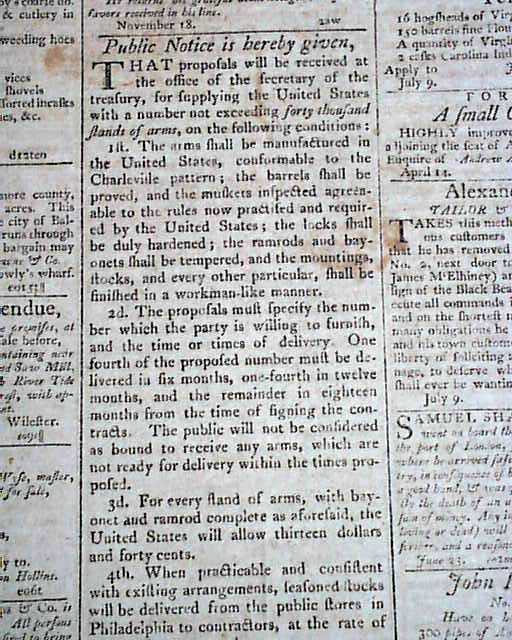 & cutlery in
weeding hoes
vices
shovels
ssorted in casks
es, &c.
draten
more county,
acres. This
e city of Bal-
runs through
bargain may
& Co.
owly's wharf.
eo15¶
endue,
premises, at
before,
ntaining near
Saw Mill,
& River Tide
with ap-
Wilester.
master,
for sale,
ly to.
on Hollins.
eo6t
& Co. is
All persons
favors received in his line.
November 18. 2aw
Public Notice is hereby given,
THAT proposals will be received at
the office of the secretary of the
treasury, for supplying the United States
with a number not exceeding forty thousand
stands of arms, on the following conditions:
1st. The arms shall be manufactured in
the United States, conformable to the
Charleville pattern; the barrels shall be
proved, and the muskets inspected agree-
able to the rules now practised and requir-
ed by the United States; the locks shall
be duly hardened; the ramrods and bay-
onets shall be tempered, and the mountings,
stocks, and every other particular, shall be
finished in a workman-like manner.
2d. The proposals must specify the num-
ber which the party is willing to furnish,
and the time or times of delivery. One
fourth of the proposed number must be de-
livered in six months, one-fourth in twelve
months, and the remainder in eighteen
months from the time of signing the con-
tracts. The public will not be considered
as bound to receive any arms, which are
not ready for delivery within the times pro-
posed.
3d. For every stand of arms, with bay-
onet and ramrod complete as aforesaid, the
United States will allow thirteen dollars
and forty cents.
4th. When practicable and consistent
with existing arrangements, seasoned stocks
will be delivered from the public stores in
Philadelphia to contractors, at the rate of
16 hogsheads of Virgi
150 barrels fine Flou
A quantity of Virgi
2 casks Carolina Ind
Apply to
July 9.
FOR
A small
HIGHLY improve
adjoining the seat of
Enquire of Andrew
April 14.
Alexan
TAILOR &
TAKES this meth
ous customers
that he has removed
No. 2, next door to
James M'Elhiney) at
sign of the Black Bea
ecute all commands i
and on the shortest n
many obligations he
and his town custome
liberty of soliciting
nage, to deserve wh
shall ever be wantin
July 9.
SAMUEL SHA
went on board th
the port of London,
where he arrived safe
try, in consequence of
a good hand, & was
On the death of an
sum of money. Any
living or dead) will
and a reasona
June 23.
John
No.
Have on
300 pipes of